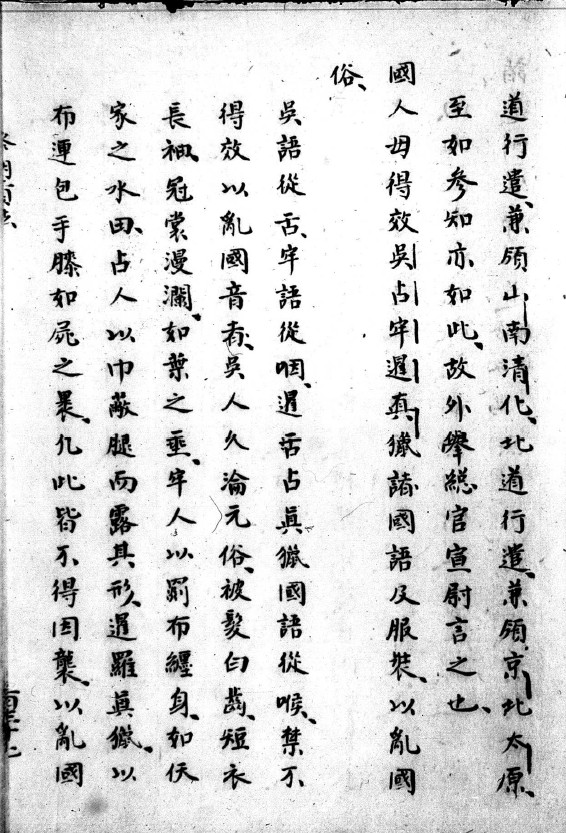 道行遣兼領山南清化北道行遣兼領京北太原
至如參知亦如此故外舉總官宣尉言之也
國人毋得效吳占牢暹真獵諸國語及服裝以亂國
俗
吳語從舌牢語從咽暹舌占眞獵國語從喉禁不
得效以亂國音吳人久淪元俗被髮白齒短衣
長袖冠裳漫瀾如葉之垂牢人以罽布纏身如仸
家之水田占人以巾蔽腿而露其形暹羅眞獵以
布連包手膝如屍之裹凡此皆不得因襲以亂國